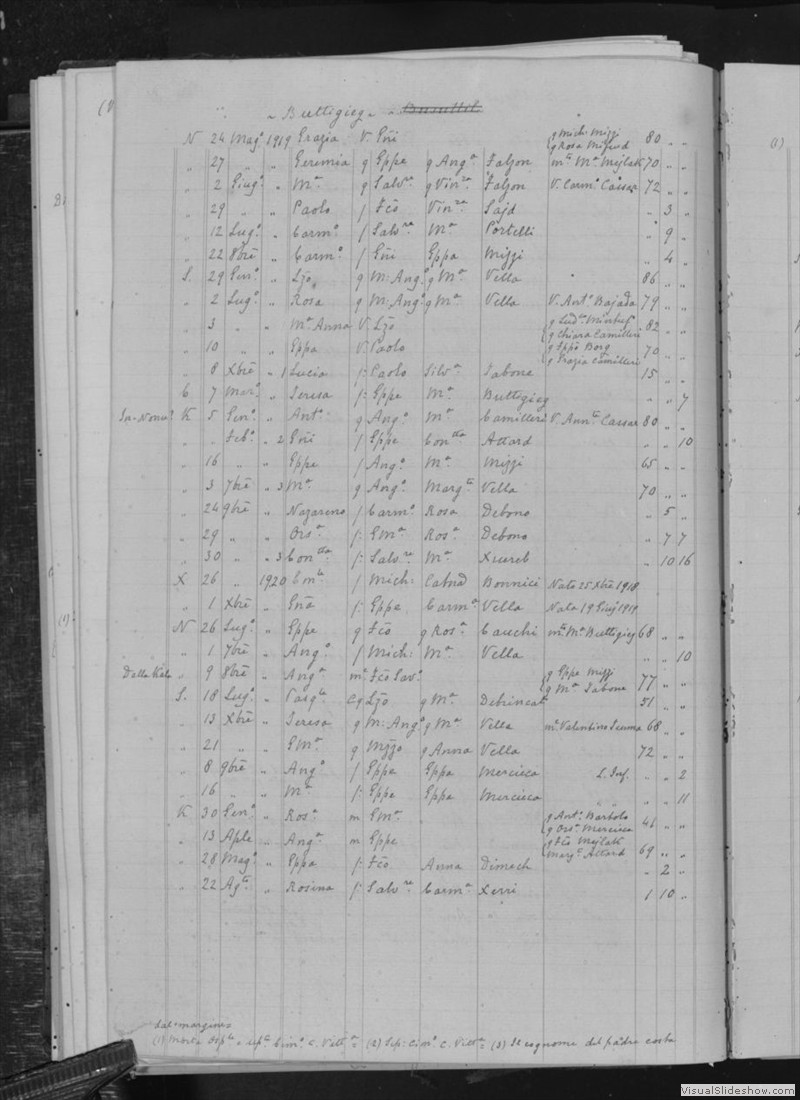 " Buttigieg " Busuttil
N 24 Magº 1919 Grazia V. Gñi g Mich: Mizzi 80 " "
g Rosa Mifsud
" 27 " " Geremia g Eppe g Angª Falzon mª Mª Mejlak 70 " "
" 2 Giugº " Mª g Salvre g Vinza Falzon V. Carmº Cassar 72 " "
" 29 " " Paolo f Fco Vinza Sajd " 3 "
" 12 Lugº " Carmº f Salvre Mª Portelli " 9 "
" 22 8bre " Carmº f Gñi Eppa Mizzi " 4 "
S. 29 Genº " Lzo g M: Angº g Mª Vella 86 " "
" 2 Lugº " Rosa g M: Angº g Mª Vella V. Antº Bajada 79 " "
" 3 " " Mª Anna V. Lzo 82 " "
g Chiara Camilleri
" 10 " " Eppa V. Paolo g Eppe Borg 70 " "
g Grazia Camilleri
" 8 Xbre " 1 Lucia f: Paolo Silvª Tabone 15 " "
C 7 Marº " Teresa f: Eppe Mª Buttigieg " " 7
K 5 Genº " Antº g Angº Mª Camilleri V. Annta Cassar 80 " "
" " Febº " 2 Gñi f Eppe Conta Attard " " 10
" 16 " " Eppe f Angº Mª Mizzi 65 " "
" 3 7bre " 3 Mª g Angº Margta Vella 70 " "
" 24 9bre " Nazareno f Carmº Rosa Debono " 5 "
" 29 " " Orsª f: Emª Rosª Debono " 7 7
" 30 " " 3 Conta f: Salvre Mª Xuereb " 10 16
X 26 " 1920 f Mich: Bonnici Nato 25 Xbre 1918
" 1 Xbre " Gña f: Eppe Carmª Vella Nata 19 Giugº 1919
N 26 Lugº " Eppe g Fco g Rosª Cauchi mª Mª Buttigieg 68 " "
" 1 7bre " Angº f Mich: Mª Vella " " 10
Dalla Kala " 9 8bre " Angª mª Fco Savº g Eppe Mizzi 77 " "
g Mª Tabone
S. 18 Lugº " g Lzo g Mª Debrincat 51 " "
" 13 Xbre " Teresa g M: Angº g Mª Vella mª Valentino Scerma 68 " "
" 21 " " Emª g Mzzo g Anna Vella 72 " "
" 8 9bre " Angº f Eppe Eppa Mercieca L. Inf. " " 2
" 16 " " Mª f: Eppe Eppa Mercieca " " 11
K 30 Genº " Rosª m Emª g Antº Bartolo 41 " "
g Orsª Mercieca
" 13 Aple " Angª m Eppe g Fco Mejlak 69 " "
Margª Attard
" 28 Magº " Eppa f: Fco Anna Dimech " 2 "
" 22 Agto " Rosina f: Salvre Carmª Xerri 1 10 "
(1)
(1)
Dal margine
(1) Morta Osple e sepª Cimº C. Vittª = (2) Sep: Cimº C. Vittª = (3) Il cognome del padre costa
VisualSlideshow.com